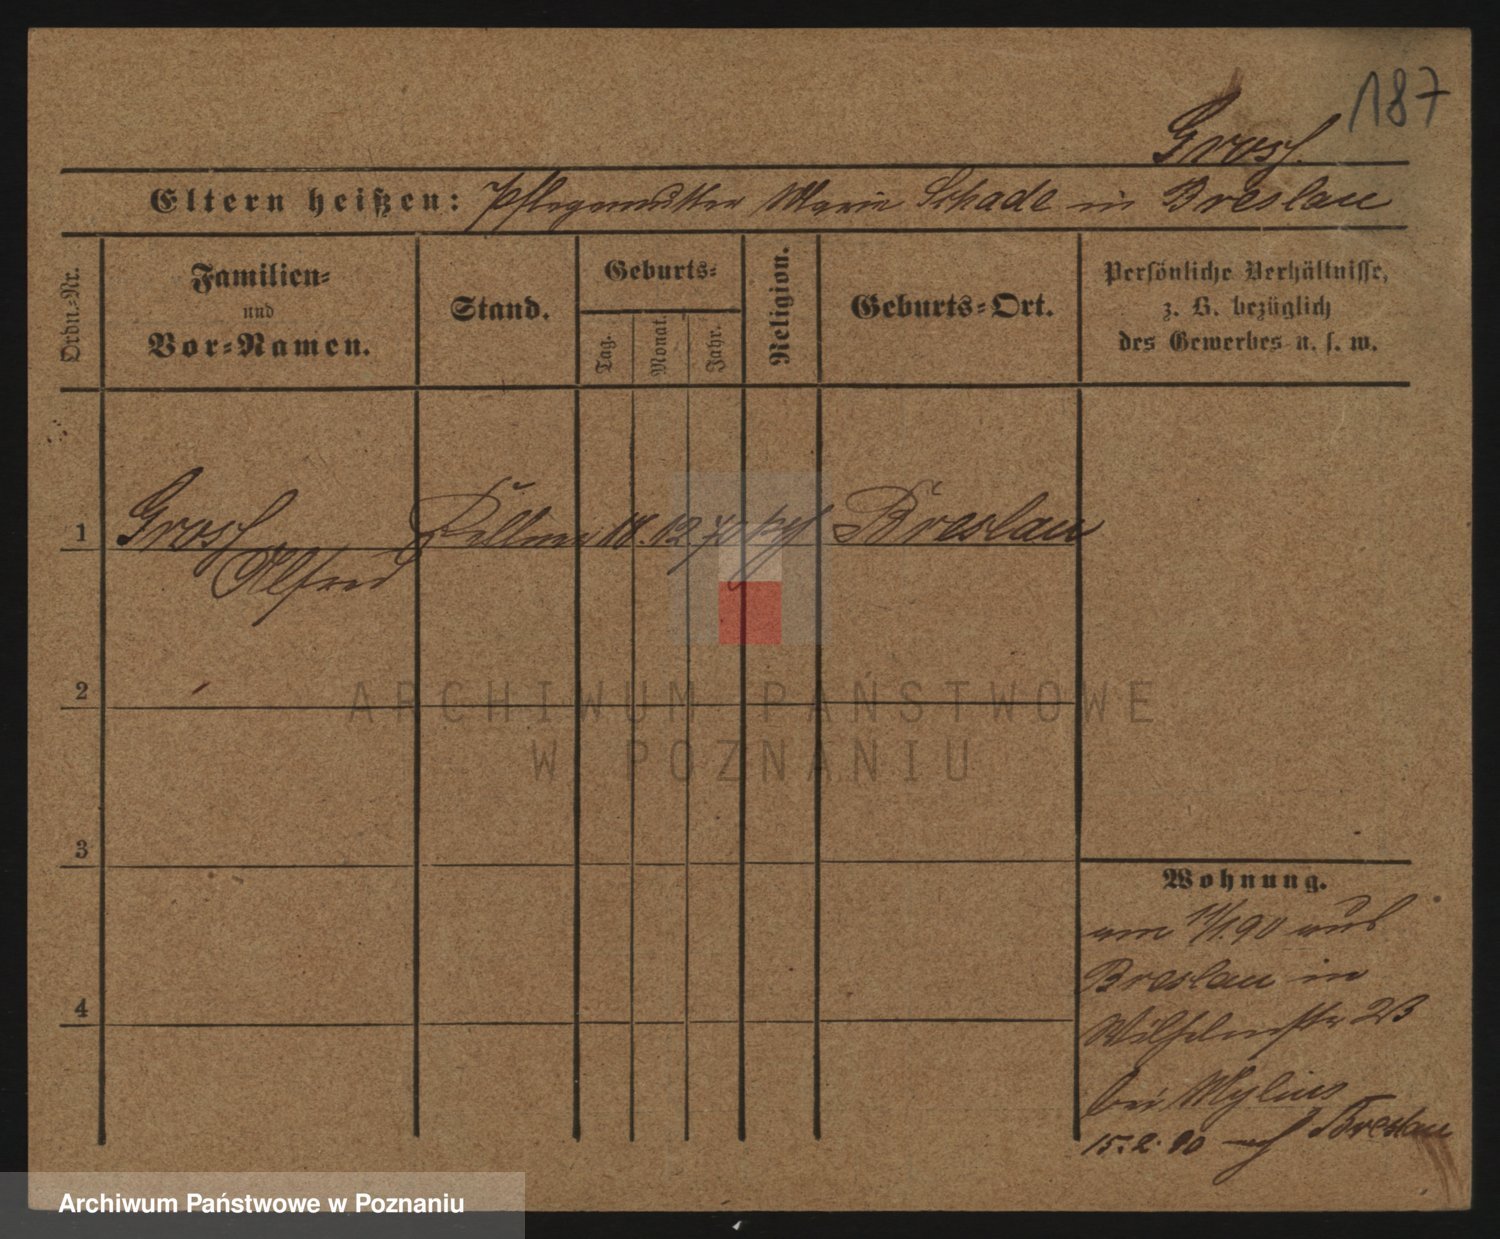 187
Grosf.
Eltern heißen: Pflegemutter Marie Schade in Breslau
Ordn.-Nr.
Familien-
und
Vor-Namen.
Stand.
Geburts-
Tag.
Monat.
Jahr.
Religion.
Geburts-Ort.
Persönliche Verhältnisse,
z. B. bezüglich
des Gewerbes u. s. w.
1 Grosf Kellner 18. 12 70 Breslau
Alfred
2
3
4
ARCHIWUM PAŃSTWOWE
W POZNANIU
Wohnung.
am 11/1.90 aus
Breslau in
Wilhelmstr 23
bei Mylius
15.2.90 nach Breslau
Archiwum Państwowe w Poznaniu